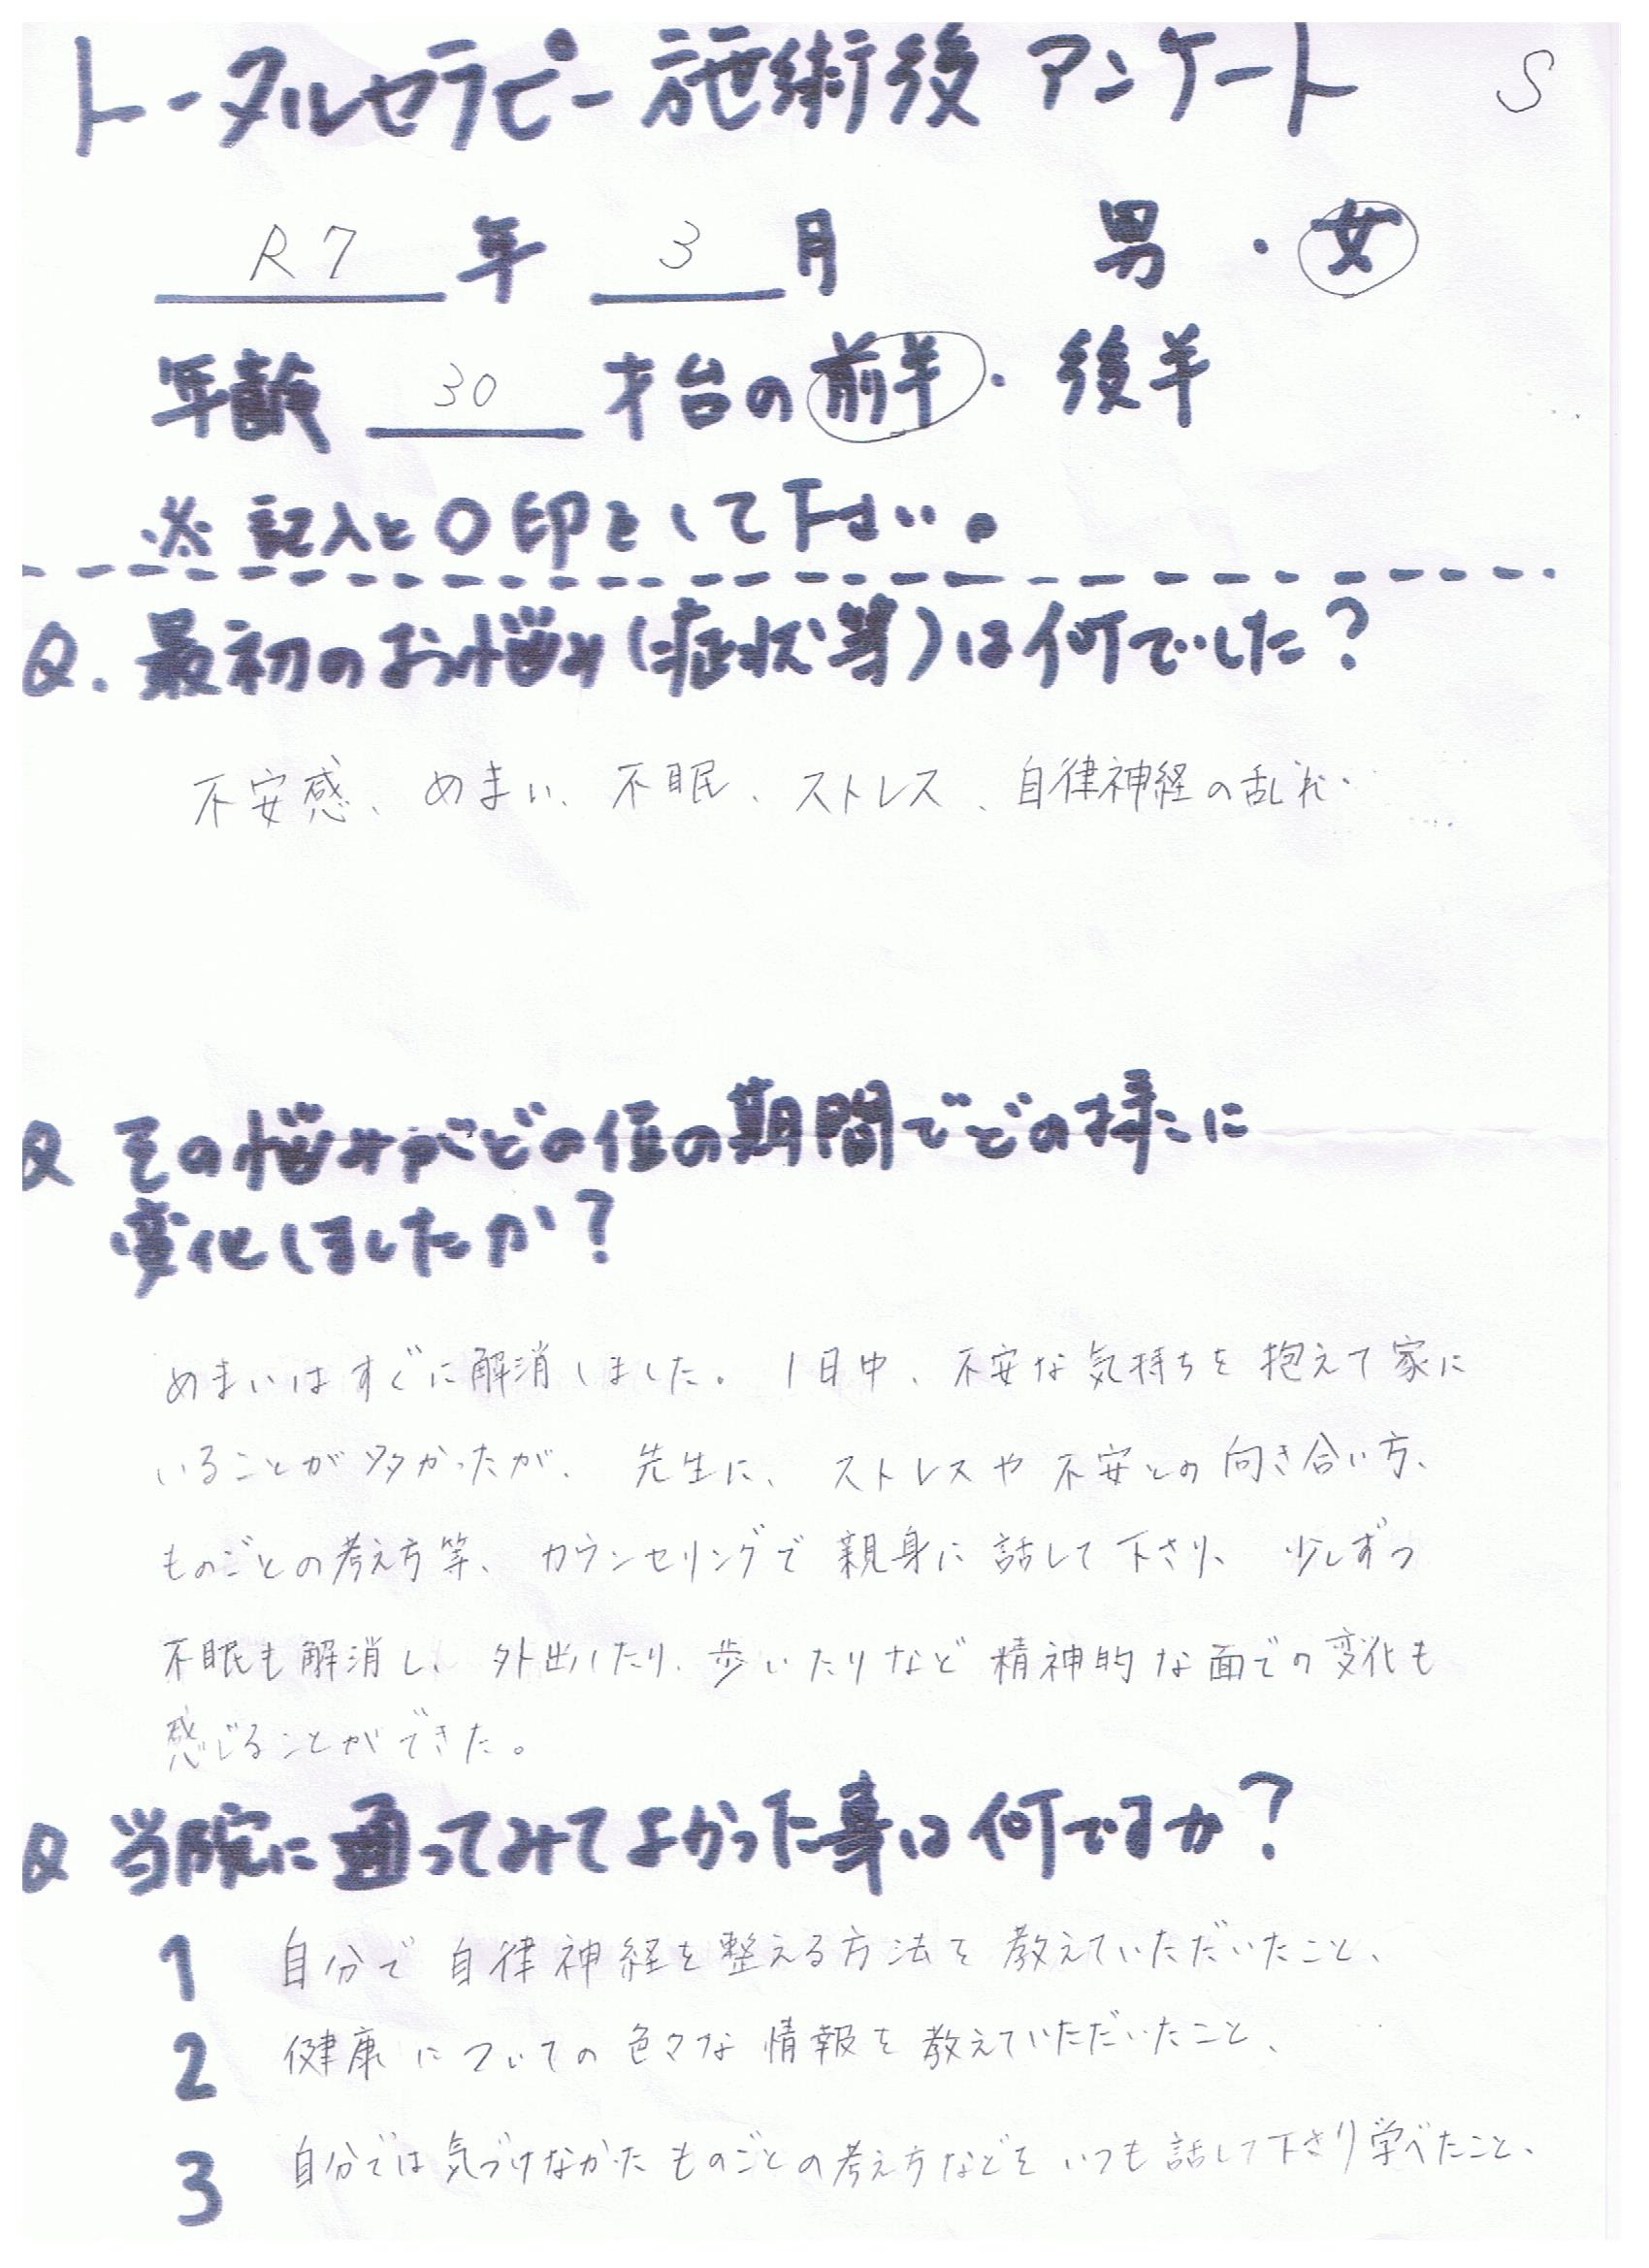 トータルセラピー施術後 アンケート S
R7 年 3 月 男 ・ 女
年齢 30 才台の 前半 ・ 後半
※ 記入と〇印をして下さい。
Q. 最初のお悩み(症状等)は何でした?
不安感、めまい、不眠、ストレス、自律神経の乱れ
Q その悩みがどの位の期間でどの様に
変化しましたか?
めまいはすぐに解消しました。1日中、不安な気持ちを抱えて家に
いることが多かったが、先生に、ストレスや不安との向き合い方、
ものごとの考え方等、カウンセリングで親身に話して下さり、少しずつ
不眠も解消し、外出したり、歩いたりなど精神的な面での変化も
感じることができた。
Q 当院に通ってみてよかった事は何ですか?
1 自分で自律神経を整える方法を教えていただいたこと、
2 健康についての色々な情報を教えていただいたこと、
3 自分では気づけなかたものごとの考え方などをいつも話して下さり学べたこと、